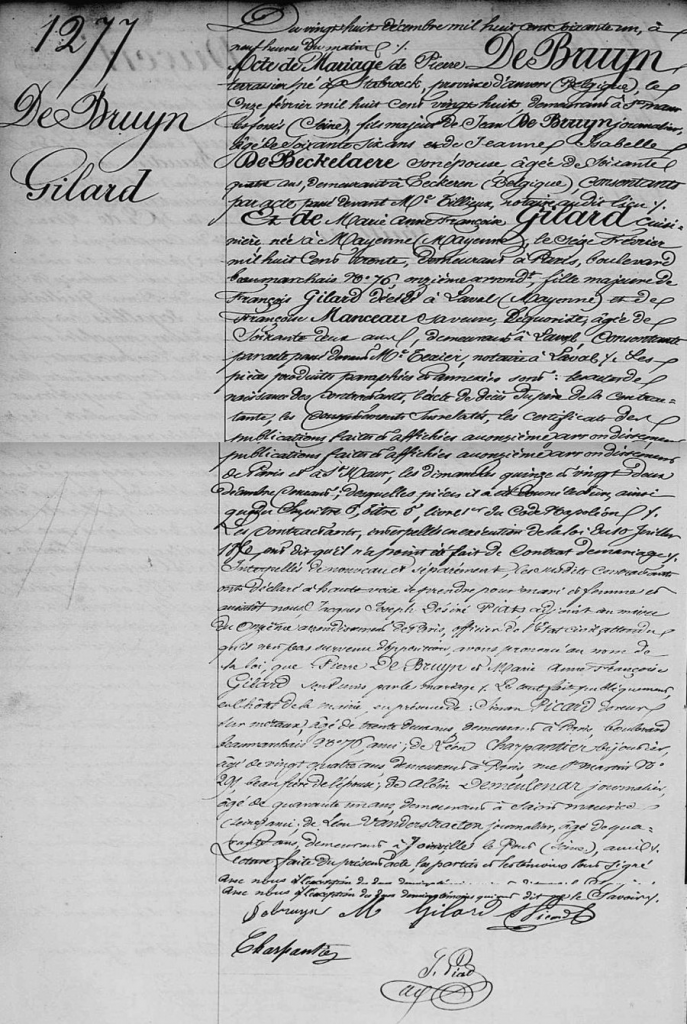 1277
De Bruyn
Gilard
Du vingt huit décembre mil huit cent soixante un, à
neuf heures du matin /.
Acte de Mariage de Pierre De Bruyn
terrassier, né à Stabroeck, province d'anvers (Belgique), le
onze février mil huit cent vingt huit, demeurant à St maur
les fossés (Seine), fils majeur de Jean De Bruyn journalier,
âgé de Soixante Six ans et de Jeanne Isabelle
De Beckelaere son épouse, âgée de Soixante
quatre ans, demeurant à Eeckeren (Belgique) Consentants
par acte passé devant Me Gilliux, notaire au dit lieu /.
Et de Marie Anne Françoise Gilard cuisi-
nière, née à Mayenne (Mayenne), le seize Février
mil huit Cent trente, demeurant à Paris, boulevard
beaumarchais No 76, onzième arrondt, fille majeure de
François Gilard décédé à Laval (Mayenne) et de
Françoise Manceau sa veuve, âgée de
Soixante deux ans, demeurant à Laval, Consentante
par acte passé devant Me notaire à Laval /. Les
pièces produites paraphées et annexées sont: les actes de
naissance des Contractants, l'acte de décès du père de la Contrac-
tante, les Consentements Susrelatés, les certificats des
publications faites et affichées au onzième arrondissement
publications faites et affichées au onzième arrondissement
de Paris et à St Maur, les dimanches quinze et vingt deux
décembre courant; desquelles pièces il a été donné lecture, ainsi
que du Chapitre 6, titre 5, livre 1er du Code Napoléon /.
Les Contractants, interpellés en exécution de la loi du 10 Juillet
1850 ont dit qu'il n'a point été fait de Contrat de mariage /.
Interpellés de nouveau et séparément, les susdits Contractants
ont déclaré à haute voix se prendre pour mari et femme et
aussitôt nous, Jacques Joseph Désiré Piat adjoint au maire
du Onzième arrondissement de Paris, officier de l'état civil, attendu
qu'il n'est pas survenu d'opposition, avons prononcé au nom de
la loi, que Pierre De Bruyn et Marie Anne Françoise
Gilard sont unis par le mariage /. Le tout fait publiquement
en l'hôtel de la mairie, en présence de: Simon Picard
sur métaux, âgé de trente deux ans, demeurant à Paris, boulevard
beaumarchais No 76, ami; de Léon Charpentier bijoutier,
âgé de vingt quatre ans demeurant à Paris rue St martin No
291, beau frère de l'épouse; de Albin Demeulenar journalier,
âgé de quarante un ans, demeurant à Saint maurice
(Seine) ami; de Léon Vanderstraeten journalier, âgé de qua-
rante ans, demeurant à Joinville le Pont (Seine), ami /.
Lecture faite du présent acte, les parties et les témoins l'ont signé
avec nous à l'exception des deux derniers
avec nous à l'exception des deux derniers témoins qui ont dit ne le Savoir /.
Debruyn M Gilard Picard
Charpentier
J. Piat
adj